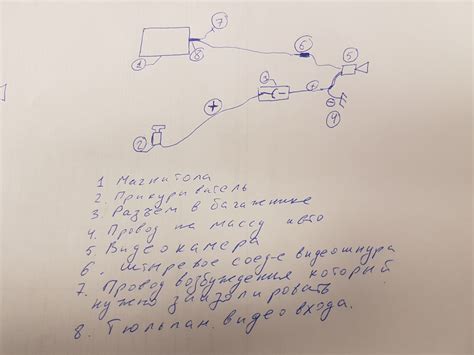 7
6
5
1
8
3
+
+
⊖
4
2
+
1 Магнитола
2. Прикуриватель
3. Разъём в багажнике
4. Провод на массу авто
5 Видеокамера
6. штыревое соед-е видеошнура
7. Провод возбуждения который
нужно заизолировать
8. Тюльпан. видео входа.